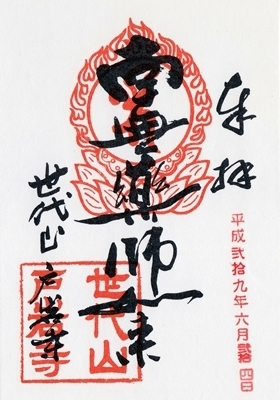 奉拝
平成弐拾九年六月弐拾四日
南無薬師如来
世代山
世代山